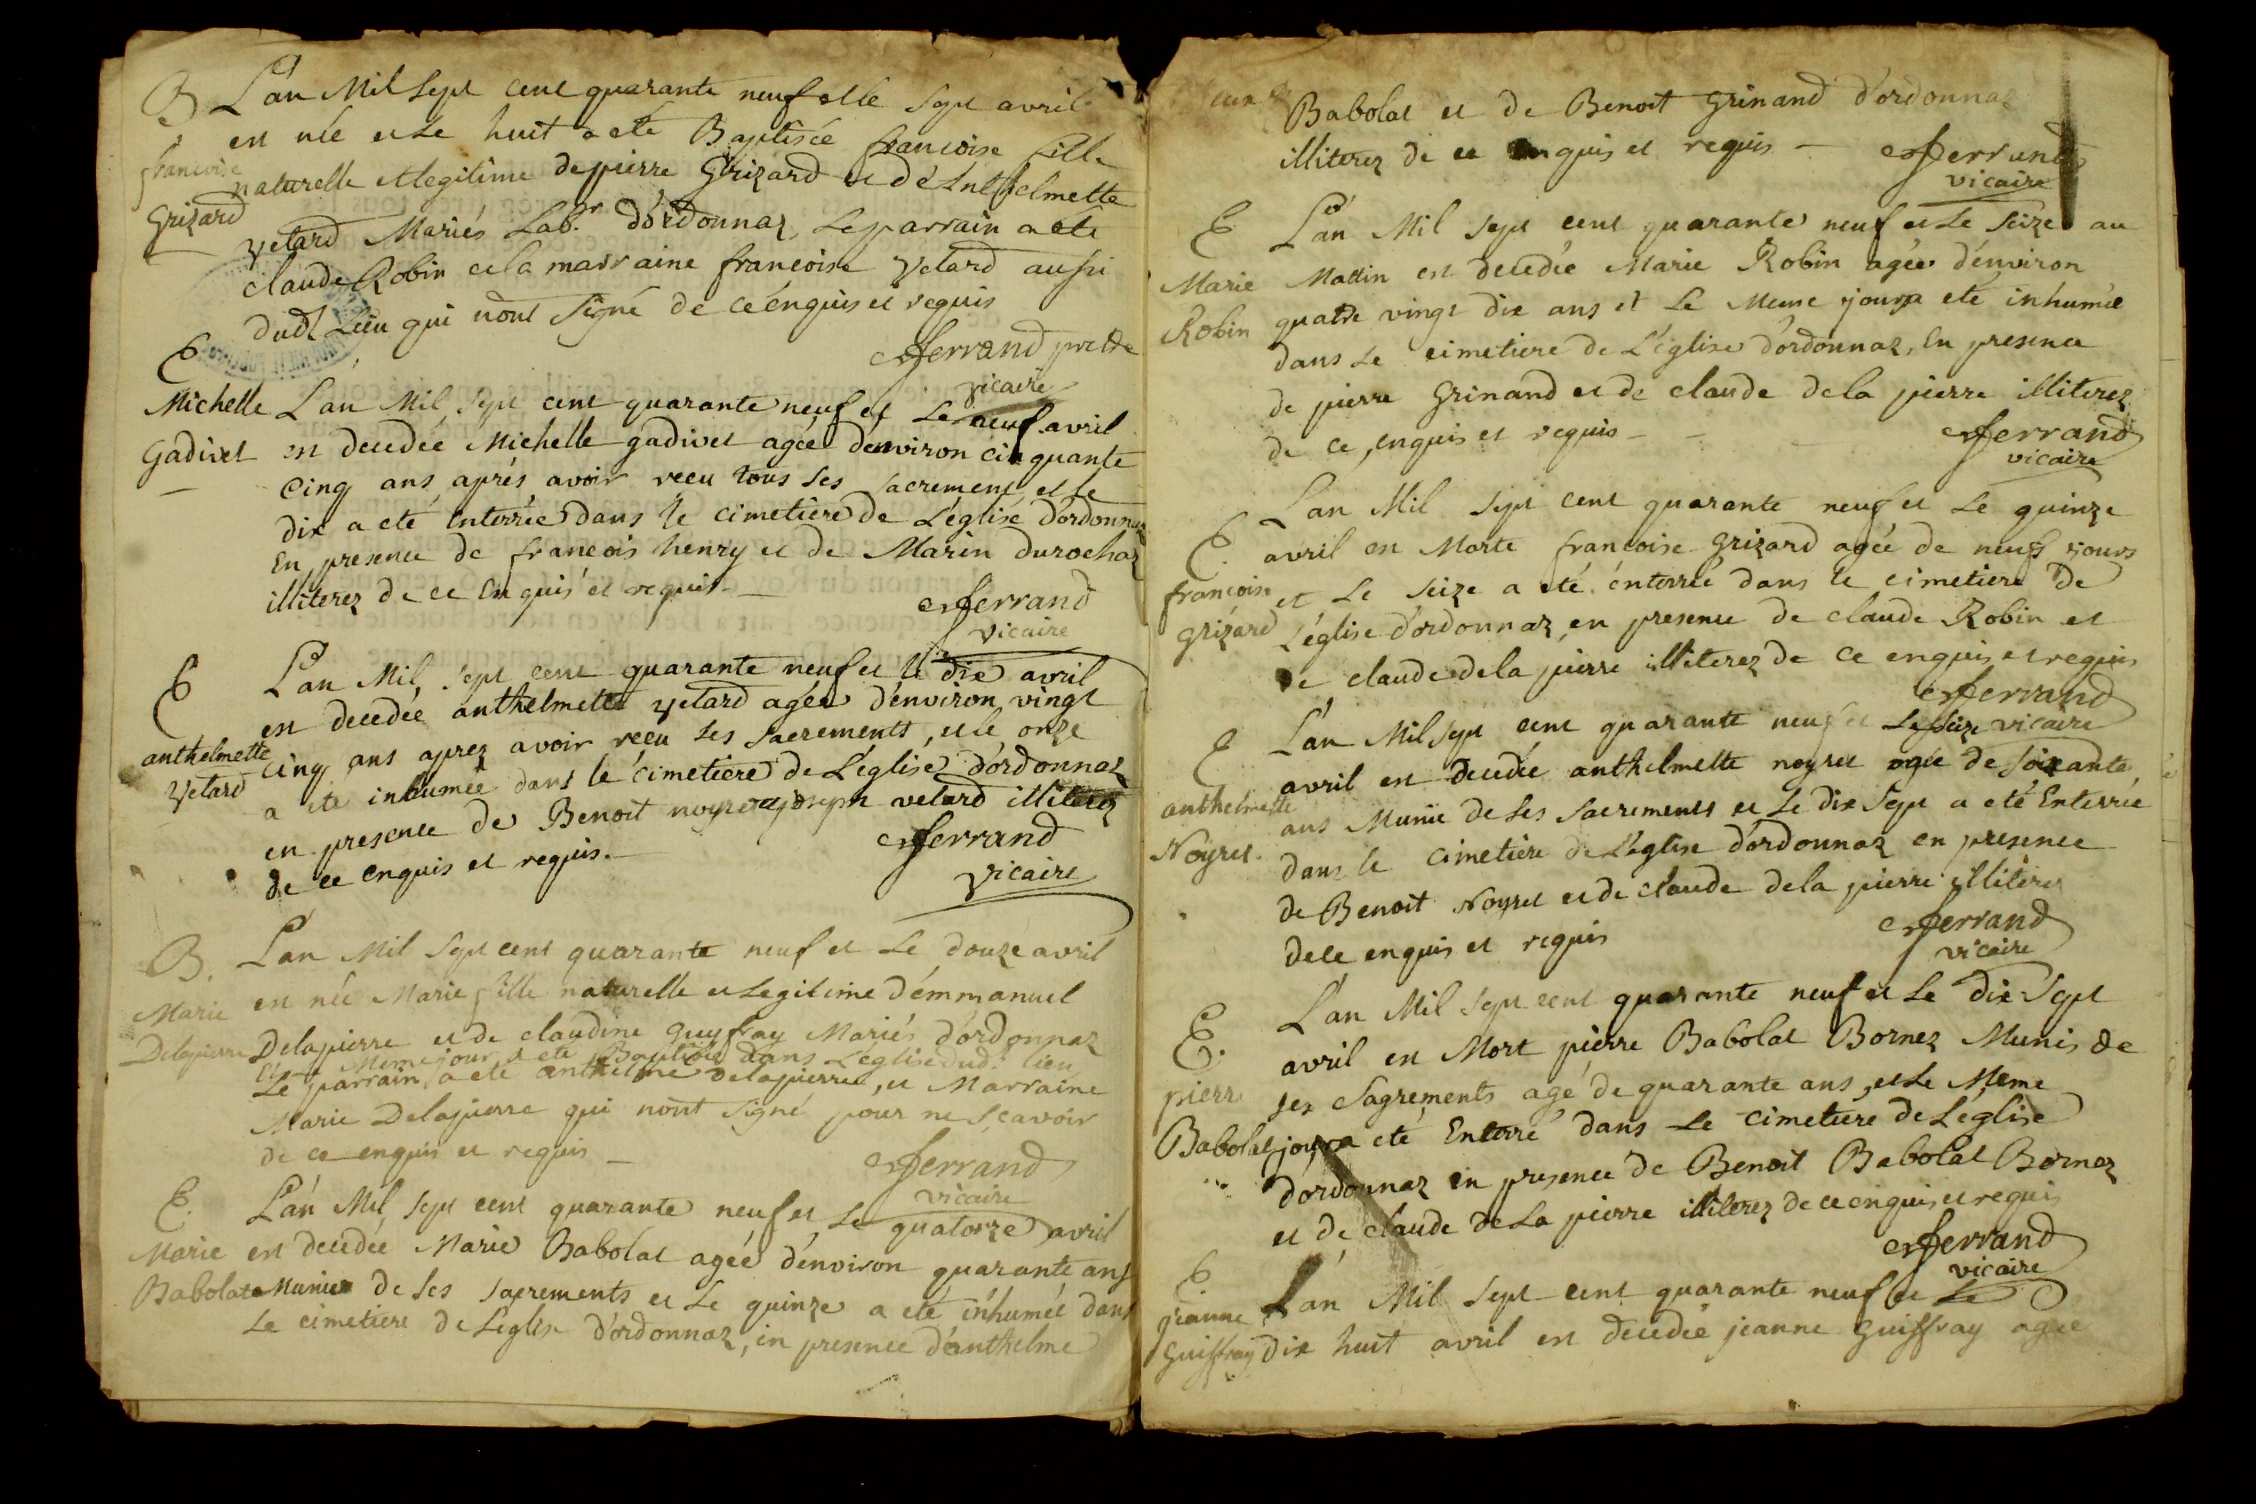 B. L'an Mil Sept cent quarante neuf et le Sept avril
est née et le huit a eté Baptisée francoise fille
francoise
naturelle et legitime de pierre Grizard et d'Anthelmette
Grizard
Vetard Mariés Lab.r d'ordonnaz, Le parrain a eté
claude Robin et la marraine francoise Vetard aussi
dud.t Lieu qui nont Signé de ce énquis et requis
ferrand prêtre
vicaire
E
Michelle
L'an Mil Sept cent quarante neuf et Le neuf avril
Gadivet
est decedée Michelle gadivet agée d'environ cinquante
cinq ans aprés avoir recu tous Ses Sacrement, et le
dix a eté Enterrée dans le cimetiere de L'église d'ordonnaz
En presence de francois henry et de Marin durochat
illiterez de ce Enquis et requis
ferrand
vicaire
E
L'an Mil Sept cent quarante neuf et le dix avril
est decedée anthelmette Vetard agée d'environ vingt
anthelmette
cinq ans aprez avoir recu Ses Sacrements, et le onze
Vetard
a eté inhumée dans le cimetiere de L'église d'ordonnaz
en presence de Benoit noyret joseph vetard illiterez
de ce enquis et requis.
ferrand
vicaire
B.
L'an Mil Sept cent quarante neuf et Le douze avril
Marie
est née Marie fille naturelle et Legitime d'émmanuel
Delapierre
Delapierre et de claudine Guyfray Mariés d'ordonnaz
et Le Meme jour a eté Baptisée dans L'eglise dud.t lieu
Le parrain, a eté anthelme delapierre, et Marraine
Marie Delapierre qui n'ont Signé pour ne Sçavoir
de ce enquis et requis
ferrand
vicaire
E.
L'an Mil Sept cent quarante neuf et Le quatorze avril
Marie
est decedée Marie Babolat agée d'environ quarante ans
Babolat
Munie de Ses Sacrements et Le quinze a eté inhumée dans
Le cimetiere de L'église d'ordonnaz, en presence d'anthelme
Babolat et de Benoit Grinand d'ordonnaz
illiterez de ce enquis et requis
ferrand
vicaire
E
L'an Mil Sept cent quarante neuf et Le Seize au
Marie
Mattin est decedée Marie Robin agée d'environ
Robin
quatre vingt dix ans et Le Meme jour a eté inhumée
dans Le cimetiere de L'église d'ordonnaz, En presence
de pierre Grinand et de claude de la pierre illiterez
de ce, enquis et requis
ferrand
vicaire
E.
L'an Mil Sept cent quarante neuf et Le quinze
avril est Morte francoise Grizard agée de neuf jours
francoise
et Le Seize a eté énterrée dans le cimetiere de
Grizard
L'église d'ordonnaz, en presence de claude Robin et
de claude de la pierre illiterez de ce enquis et requis
ferrand
vicaire
E
L'an Mil Sept cent quarante neuf et Le Seize
avril est decedée anthelmette noyret agée de Soixante
anthelmette
ans Munie de Ses Sacrements et Le dix Sept a eté Enterrée
Noyret.
dans le cimetiere de L'église d'ordonnaz en presence
de Benoit Noyret et de claude de la pierre illiterez
de ce enquis et requis
ferrand
vicaire
E.
L'an Mil Sept cent quarante neuf et Le dix Sept
avril est Mort pierre Babolat Bornez Munis de
pierre
ses Sagrements agé de quarante ans, et Le Meme
Babolat
jour a eté Enterré dans Le cimetiere de L'église
d'ordonnaz en presence de Benoit Babolat Bornez
et de claude de La pierre illiterez de ce enquis et requis
ferrand
vicaire
E
jeanne
L'an Mil Sept cent quarante neuf et Le
Guiffray
dix huit avril est decedée jeanne Guiffray agée